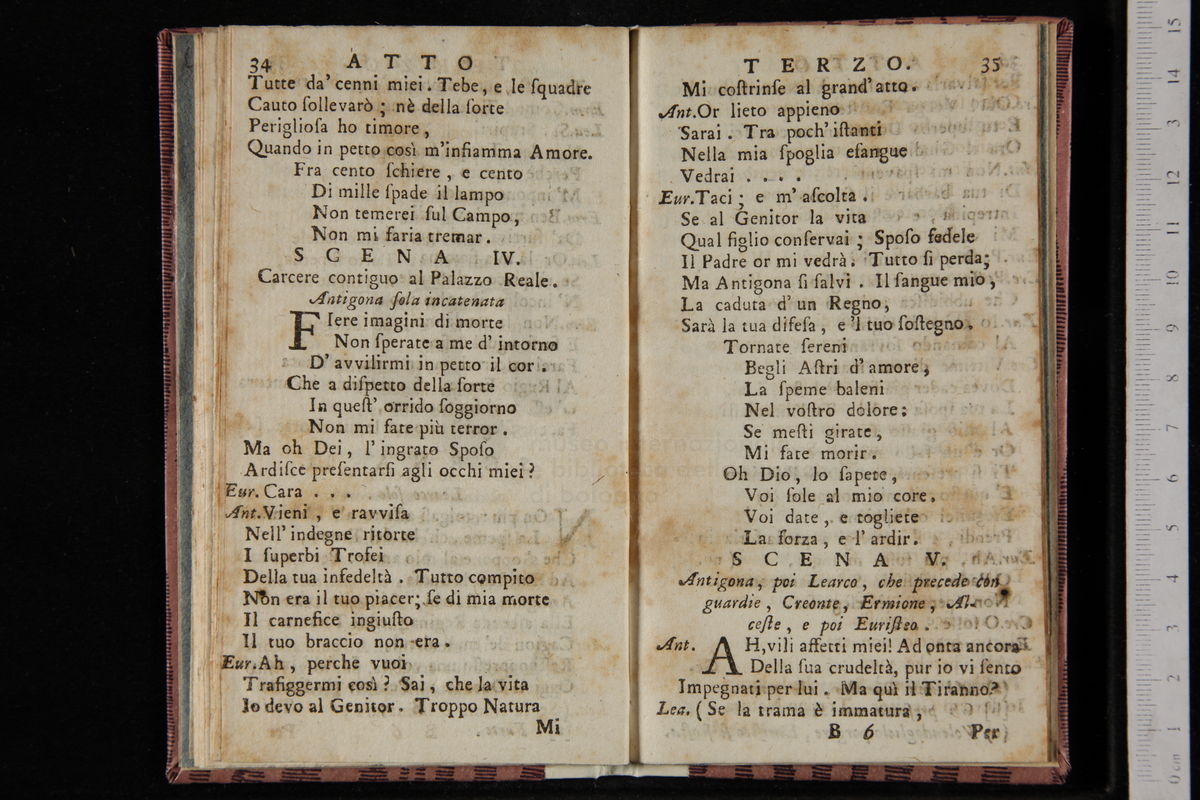 34 A T T O
Tutte da' cenni miei. Tebe, e le ſquadre
Cauto ſollevarò ; nè della ſorte
Periglioſa ho timore ,
Quando in petto così m'infiamma Amore.
Fra cento ſchiere , e cento
Di mille ſpade il lampo
Non temerei ſul Campo ,
Non mi faria tremar .
S C E N A IV.
Carcere contiguo al Palazzo Reale .
Antigona ſola incatenata
FIere imagini di morte
Non ſperate a me d' intorno
D' avvilirmi in petto il cor .
Che a diſpetto della ſorte
In queſt' orrido ſoggiorno
Non mi fate più terror .
Ma oh Dei , l' ingrato Spoſo
Ardiſce preſentarſi agli occhi miei ?
Eur. Cara . . .
Ant.Vieni , e ravviſa
Nell' indegne ritorte
I ſuperbi Trofei
Della tua infedeltà . Tutto compito
Non era il tuo piacer; ſe di mia morte
Il carnefice ingiuſto
Il tuo braccio non era .
Eur.Ah , perche vuoi
Trafiggermi così ? Sai , che la vita
Io devo al Genitor . Troppo Natura
Mi
T E R Z O. 35
Mi coſtrinſe al grand' atto .
Ant.Or lieto appieno
Sarai . Tra poch' iſtanti
Nella mia ſpoglia eſangue
Vedrai . . . .
Eur.Taci ; e m' aſcolta .
Se al Genitor la vita
Qual figlio conſervai ; Spoſo fedele
Il Padre or mi vedrà . Tutto ſi perda;
Ma Antigona ſi ſalvi . Il ſangue mio ,
La caduta d' un Regno ,
Sarà la tua difeſa , e 'l tuo ſoſtegno .
Tornate ſereni
Begli Aſtri d' amore ,
La ſpeme baleni
Nel voſtro dolore ;
Se meſti girate ,
Mi fate morir .
Oh Dio , lo ſapete ,
Voi ſole al mio core ,
Voi date , e togliete
La forza , e l' ardir .
S C E N A V.
Antigona , poi Learco , che precede con
guardie , Creonte , Ermione , Al-
ceſte , e poi Euriſteo .
Ant. AH,vili affetti miei! Ad onta ancora
Della ſua crudeltà, pur io vi ſento
Impegnati per lui . Ma quì il Tiranno?
Lea. ( Se la trama è immatura ,
B 6 Per